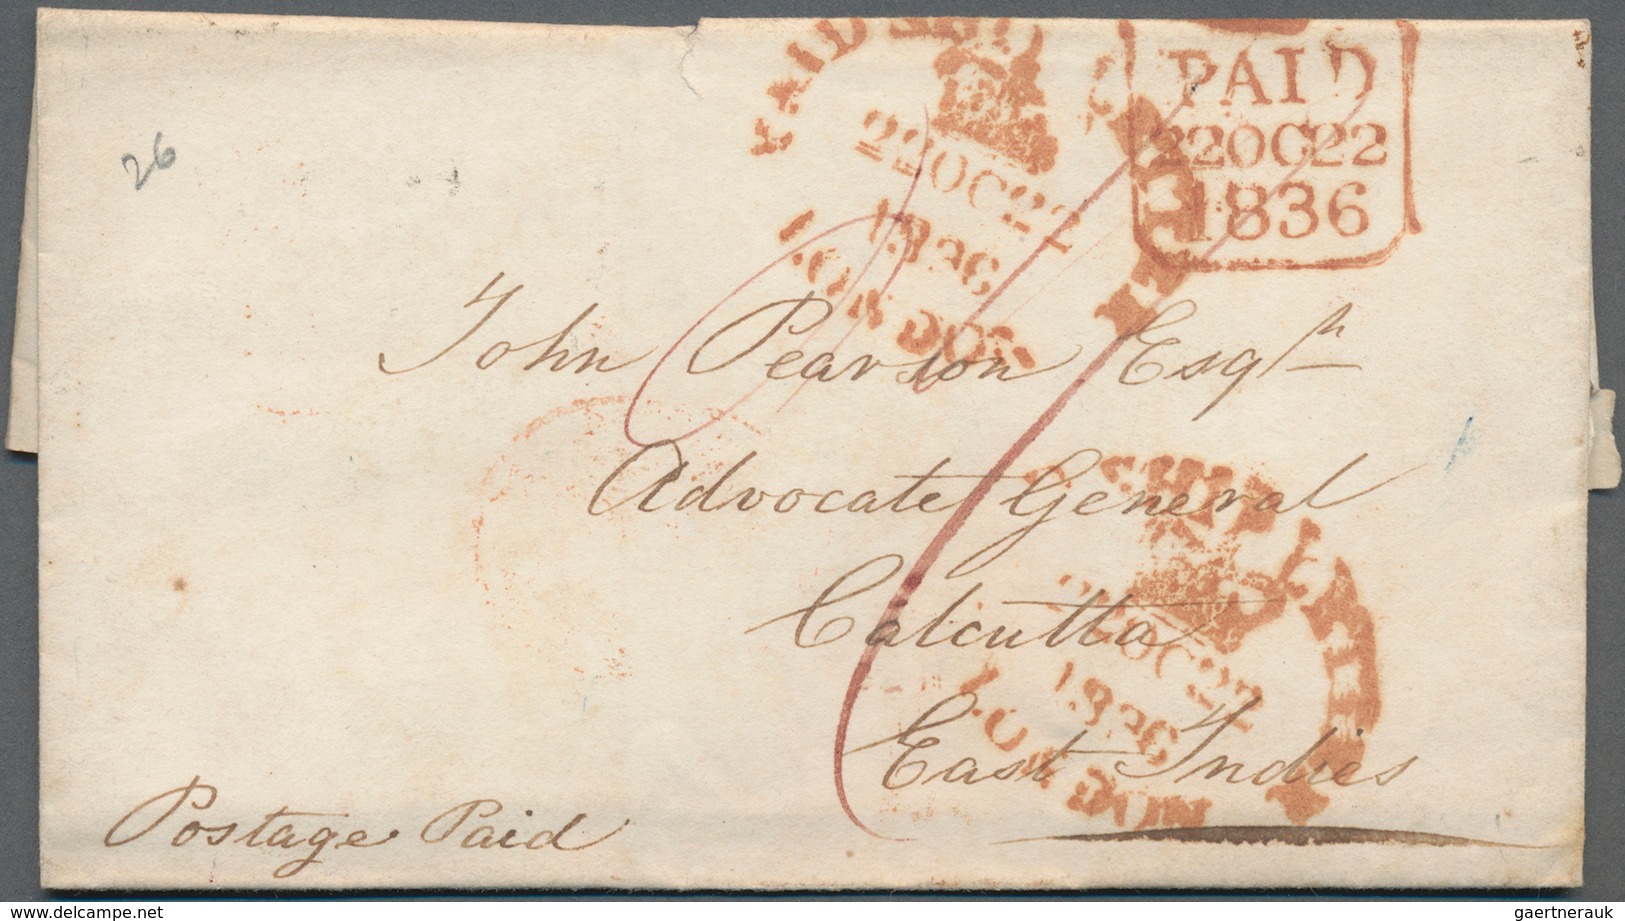 PAID SHIP LETTER
22OC22
1836
LONDON
PAID
22OC22
1836
26
John Pearson Esqr
Advocate General
Calcutta
East Indies
Postage Paid
SHIP LETTER
22OC22
1836
LONDON
gaertnerauk